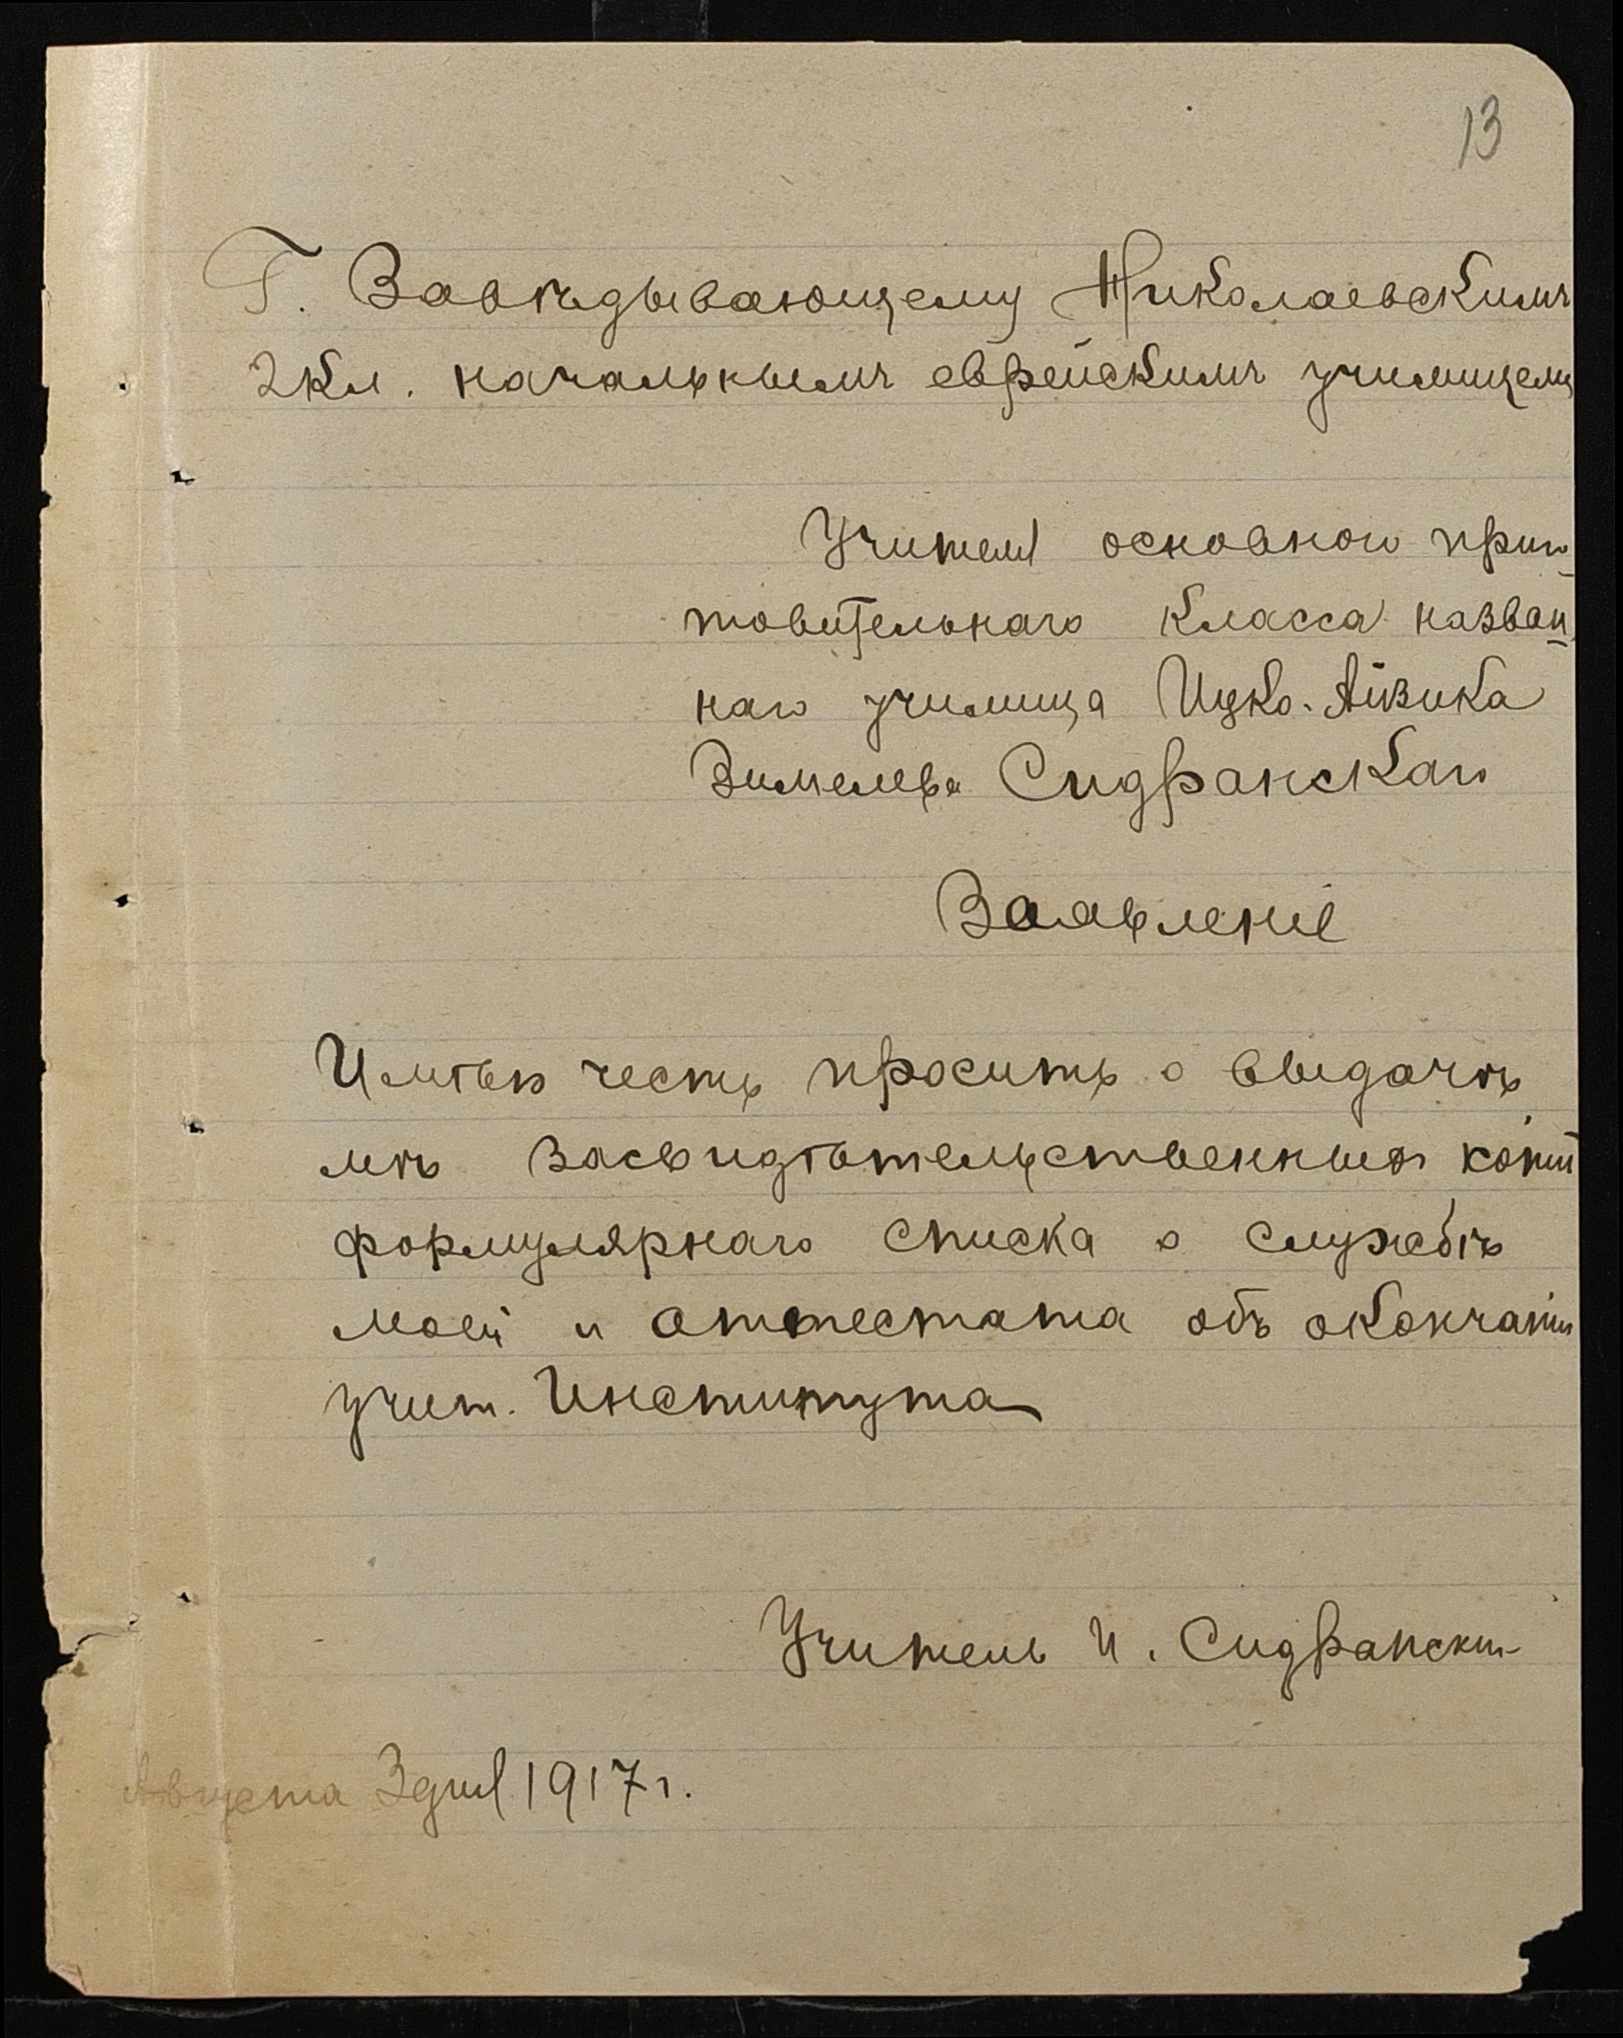 13
Г. Завѣдывающему Николаевскимъ
2 кл. начальнымъ еврейскимъ училищемъ
Учителя основного приго-
товительнаго класса назван-
наго училища Ицко-Айзика
Зимелева Сидранскаго
Заявленіе
Имѣю честь просить о выдачѣ
мнѣ засвидѣтельственныхъ копій
формулярнаго списка о службѣ
моей и аттестата объ окончаніи
учит. Института
Учитель И. Сидранскій
Августа 3 дня 1917 г.